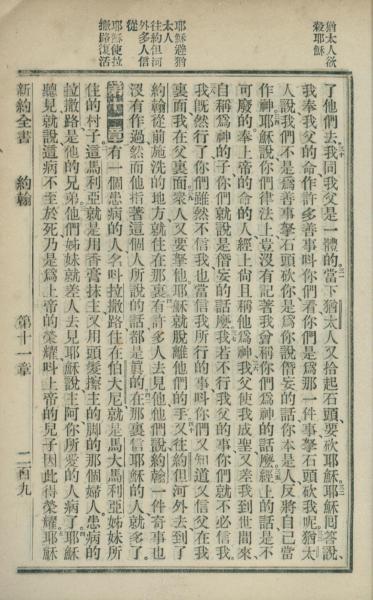 猶太人欲
殺耶穌
耶穌避猶
太人
往約但河
外多人信
從
耶穌使拉
撒路復活
了他們去我同我父是一體的當下猶太人又拾起石頭要砍耶穌耶穌囘答說
我奉我父的命作許多善事呌你們看你們是爲那一件事拏石頭砍我呢猶太
人說我們不是爲善事拏石頭砍你是爲你說僭妄的話你本是人反將自己當
作神耶穌說你們律法上豈沒有記著我曾稱你們爲神的話麼經上的話是不
可廢的奉上帝的命的人經上尙且稱他爲神我父使我成聖又差我到世間來
自稱爲神的子你們就說是僭妄的話麼我若不行我父的事你們就不必信我
我既然行了你們雖然不信我也當信我所行的事呌你們又知道又信父在我
裏面我在父裏面衆人又要拏他耶穌就脫離他們的手又往約但河外去到了
約翰從前施洗的地方就住在那裏有許多人去見他他們說約翰一件奇事也
沒有作過然而他指著這個人所說的話都是眞的在那裏信耶穌的人就多了
有一個患病的人名呌拉撒路住在伯大尼就是馬大馬利亞姊妹所
住的村子這馬利亞就是用香膏抹主又用頭髮擦主的脚的那個婦人患病的
拉撒路是他的兄弟他們姊妹就差人去見耶穌說主阿你所愛的人病了耶穌
聽見就說這病不至於死乃是爲上帝的榮耀呌上帝的兒子因此得榮耀耶穌
新約全書 約翰 第十一章 二百九